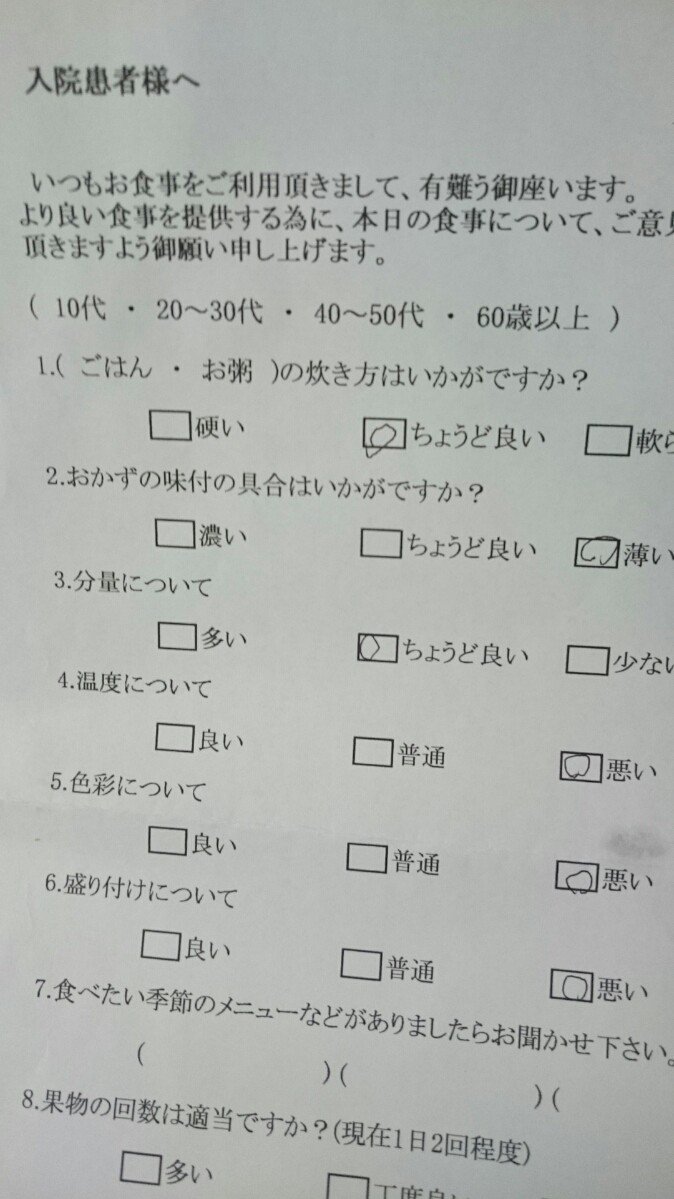 入院患者様へ
いつもお食事をご利用頂きまして、有難う御座います。
より良い食事を提供する為に、本日の食事について、ご意見
頂きますよう御願い申し上げます。
( 10代 ・ 20〜30代 ・ 40〜50代 ・ 60歳以上 )
1.( ごはん ・ お粥 )の炊き方はいかがですか？
硬い ちょうど良い 軟ら
2.おかずの味付の具合はいかがですか？
濃い ちょうど良い 薄い
3.分量について
多い ちょうど良い 少ない
4.温度について
良い 普通 悪い
5.色彩について
良い 普通 悪い
6.盛り付けについて
良い 普通 悪い
7.食べたい季節のメニューなどがありましたらお聞かせ下さい。
( )( )(
8.果物の回数は適当ですか？(現在1日2回程度)
多い 丁度良い